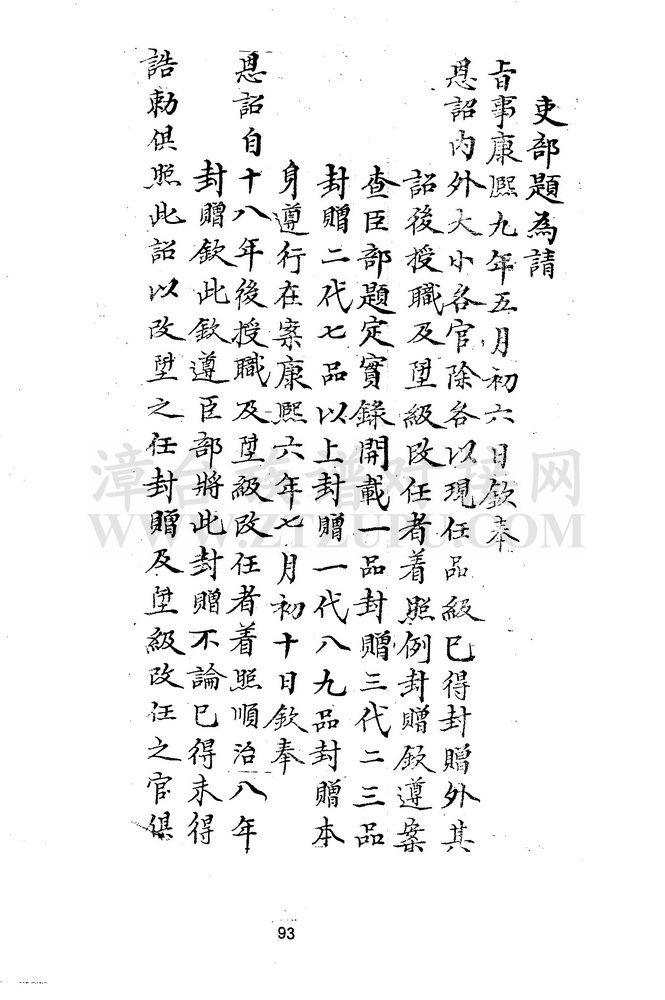 吏部題為請
旨事康熙九年五月初六日欽奉
恩詔內外大小各官除各以現任品級已得封贈外其
詔後授職及陞級改任者着照例封贈欽遵案
查臣部題定實錄開載一品封贈三代二三品
封贈二代七品以上封贈一代八九品封贈本
身遵行在案康熙六年七月初十日欽奉
恩詔自十八年後授職及陞級改任者着照順治八年
封贈欽此欽遵臣部將此封贈不論已得未得
誥勅俱照此詔以改陞之任封贈及陞級改任之官俱
漳台族谱对接网
WWW.ZTZUPU.COM
93